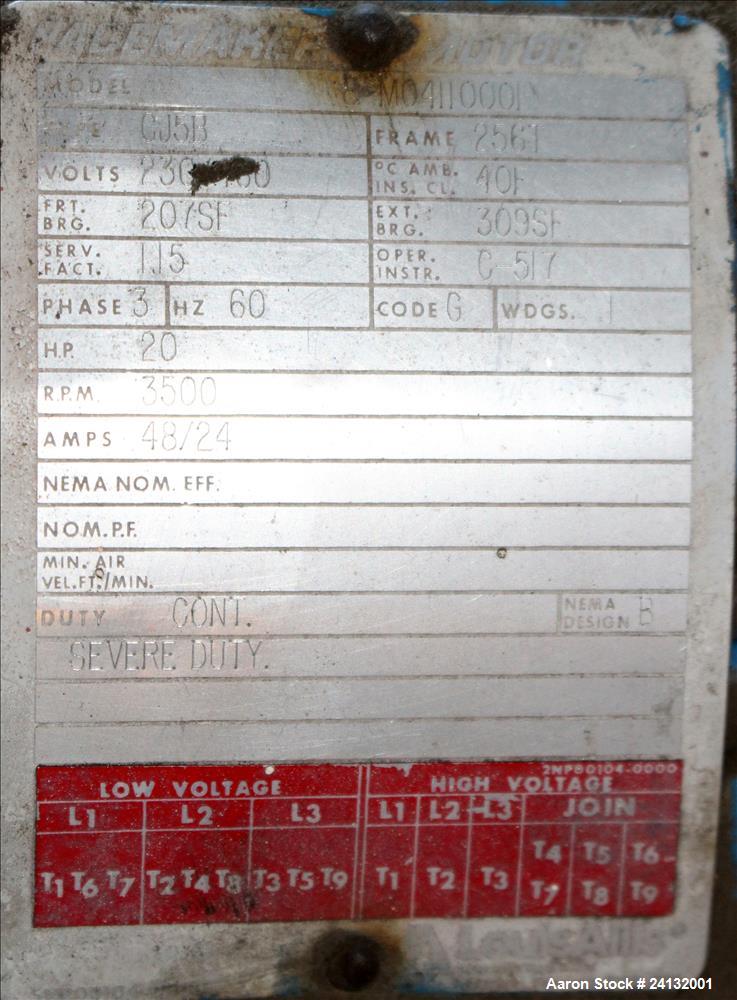 PACEMAKER MOTOR
MODEL M04110001
TYPE CJ5B FRAME 256T
VOLTS 230/460 °C AMB. INS. CL. 40F
FRT. BRG. 207SF EXT. BRG. 309SF
SERV. FACT. 1.15 OPER. INSTR. C-517
PHASE 3 HZ 60 CODE G WDGS. 1
H.P. 20
R.P.M. 3500
AMPS 48/24
NEMA NOM. EFF.
NOM. P.F.
MIN. AIR VEL. FT./MIN.
DUTY CONT. NEMA DESIGN B
SEVERE DUTY.
2NPB0104-0000
LOW VOLTAGE HIGH VOLTAGE
L1 L2 L3 L1 L2 L3 JOIN
T4 T5 T6
T1 T6 T7 T2 T4 T8 T3 T5 T9 T1 T2 T3
T7 T8 T9
Louis Allis
Aaron Stock # 24132001